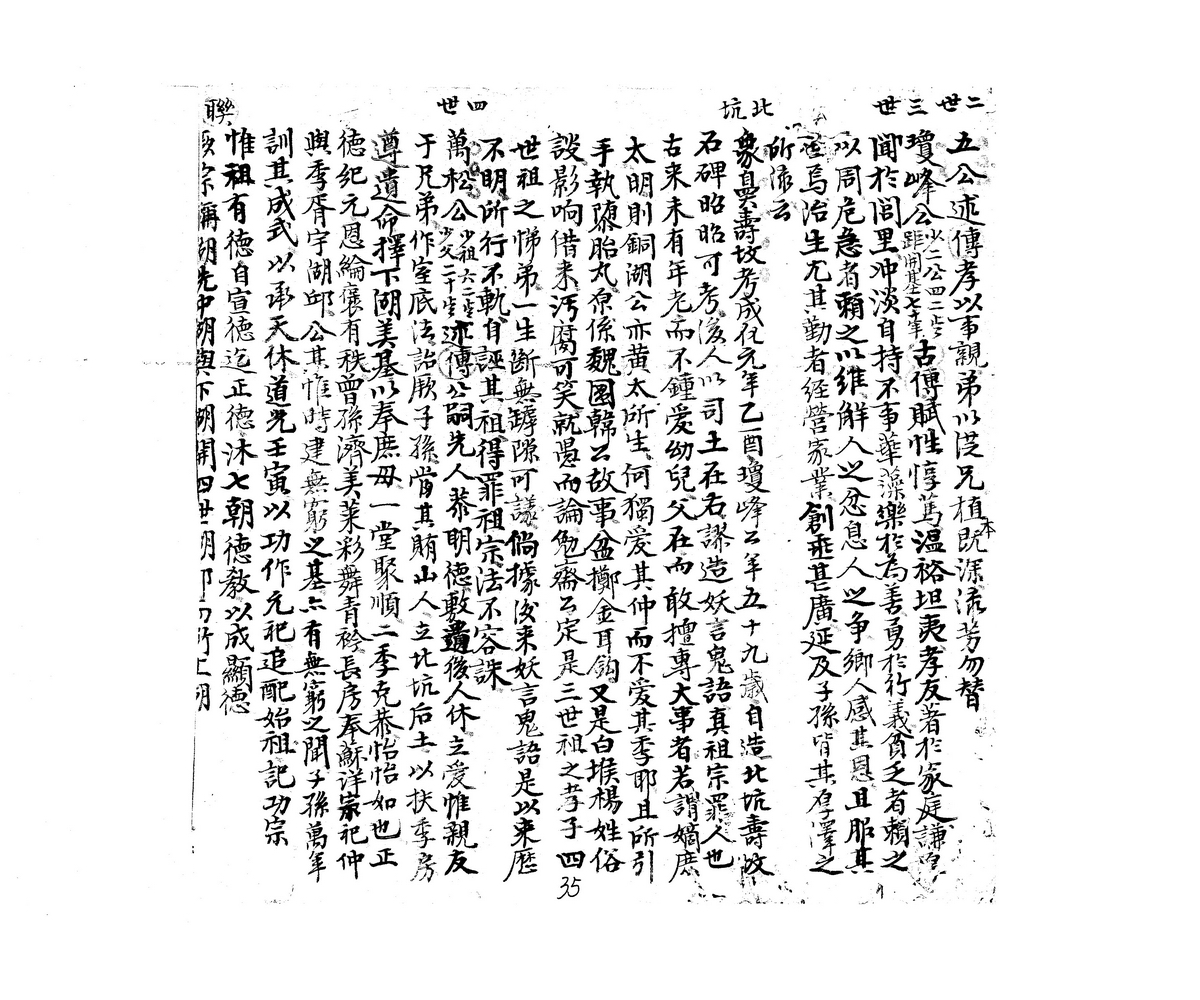 二世
三世
北坑
四世
聯
五公述傳孝以事親弟以從兄植本既深流芳勿替
瓊峰公少二公四二歲距開基七十年古傳賦性惇篤溫裕坦夷孝友著於家庭謙
聞於閭里冲淡自持不事華藻樂於為善勇於行義貧乏者賴之
以周危急者賴之以維解人之忿息人之争鄉人感其恩且服其
焉治生尤其勤者經營家業創垂甚廣延及子孫皆其厚澤之
所流云
象鼻壽坟考成化元年乙酉瓊峰公年五十九歲自造北坑壽坟
石碑昭昭可考後人以司土在右謬造妖言鬼語真祖宗罪人也
古來未有年老而不鍾愛幼兒父在而敢擅專大事者若謂嫡庶
太明則銅湖公亦黃太所生何獨愛其仲而不愛其季耶且所引
手執墮胎丸原係魏國韓公故事盆擲金耳鈎又是白堠楊姓俗
談影响借来污腐可笑就愚而論勉齋公定是三世祖之孝子四
世祖之悌弟一生斷無罅隙可議倘據後来妖言鬼語是以来歷
不明所行不軌自誣其祖得罪祖宗法不容誅
萬松公少祖六二歲少父二十歲述傳公嗣先人恭明德敷遺後人休立愛惟親友
于兄弟作室底法詒厥子孫當其賄山人立北坑后土以扶季房
尊遺命擇下湖美基以奉庶母一堂聚順二季克恭怡怡如也正
德紀元恩綸褒有秩曾孫濟美萊彩舞青衿長房奉蘇洋家祀仲
與季胥宇湖邱公其惟時建無窮之基亦有無窮之聞子孫萬年
訓其成式以承天休道光壬寅以功作元祀追配始祖記功宗
惟祖有德自宣德迄正德沐七朝德教以成顯德
宗 湖先中湖與下湖開四世
35